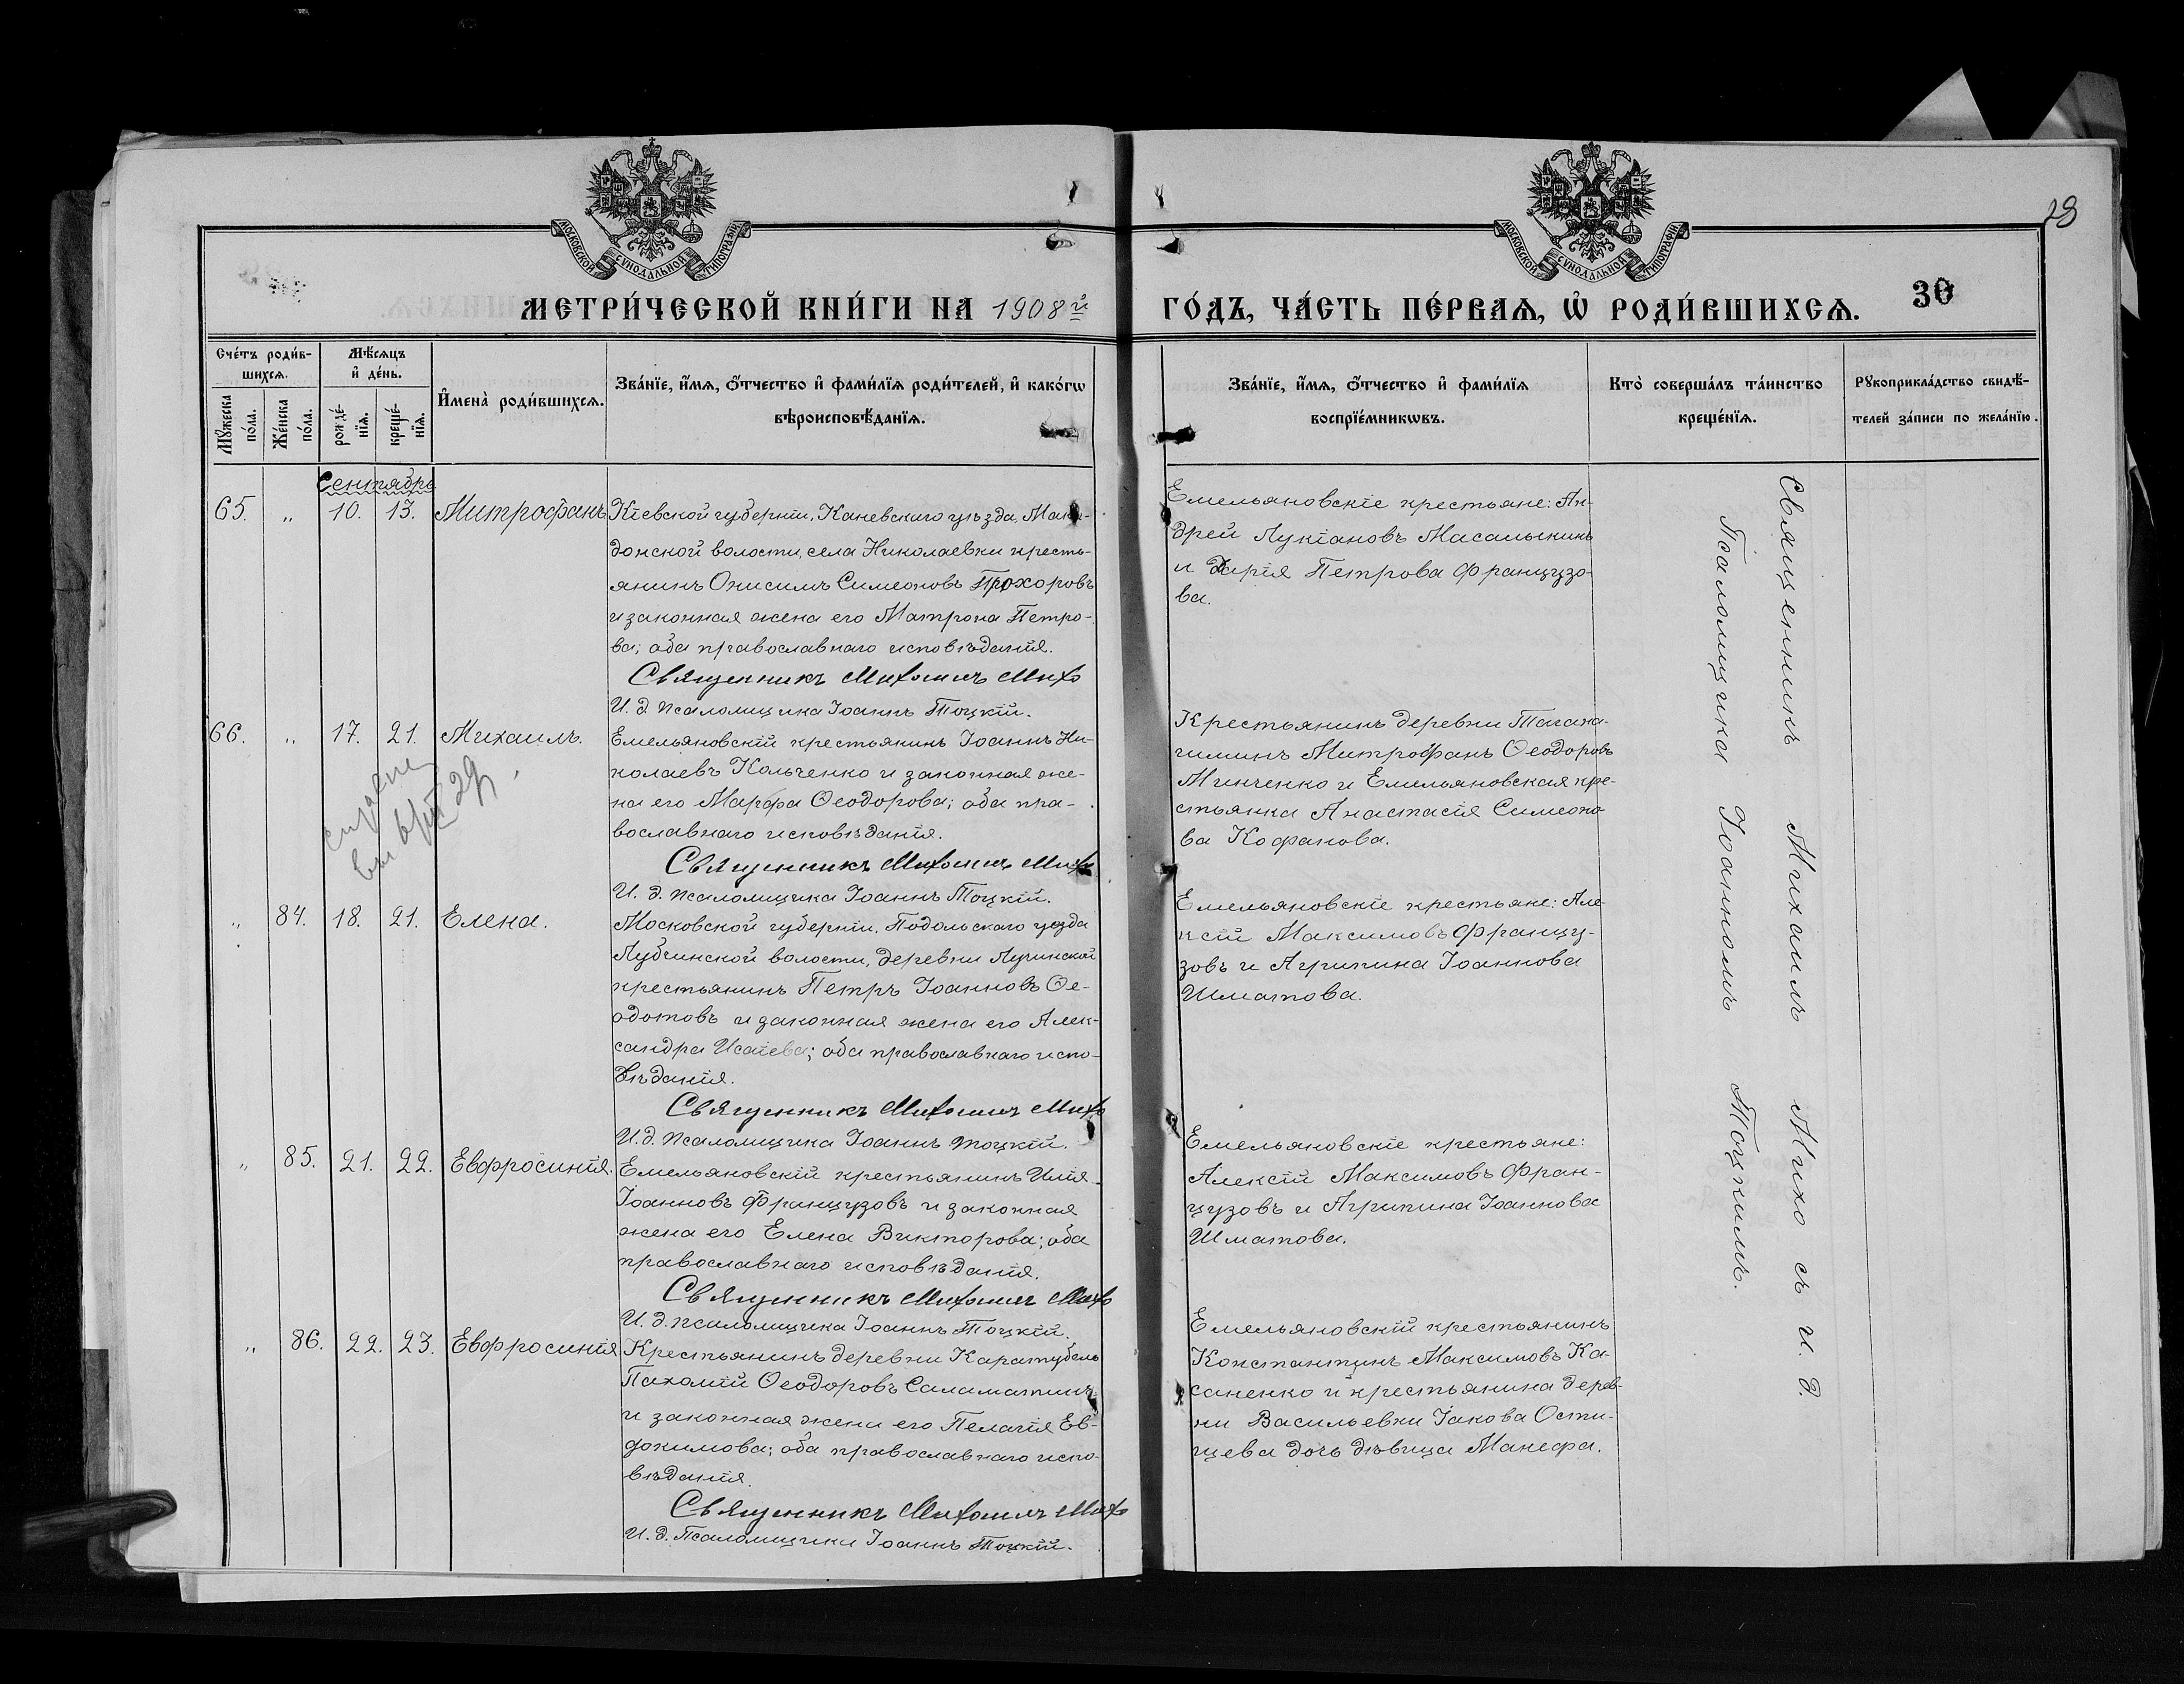 29
МОСКОВСКОЙ СѴНОДАЛЬНОЙ ТИПОГРАФІИ
МОСКОВСКОЙ СѴНОДАЛЬНОЙ ТИПОГРАФІИ
МЕТРИ́ЧЕСКОЙ КНИ́ГИ НА 1908й ГО́ДЪ, ЧА́СТЬ ПЕ́РВАѦ, Ѡ҆ РОДИ́ВШИХСѦ. 30
Сче́тъ роди́в-
шихсѧ.
Мꙋ́жеска по́ла.
Же́нска по́ла.
Мѣ́сѧцъ
и҆ де́нь.
рожде́-
нїѧ.
креще́-
нїѧ.
И҆мена̀ роди́вшихсѧ.
Зва́нїе, и҆́мѧ, ѻ҆́тчество и҆ фами́лїѧ роди́телей, и҆ како́гѡ
вѣроисповѣ́данїѧ.
Зва́нїе, и҆́мѧ, ѻ҆́тчество и҆ фами́лїѧ
воспрїе́мникѡвъ.
Кто̀ соверша́лъ та́инство
креще́нїѧ.
Рꙋкоприкла́дство свидѣ́-
телей за́писи по жела́нїю.
Сентябрь
65. " 10. 13. Митрофанъ
Кіевской губерніи, Каневскаго уѣзда, Маки-
донской волости, села Николаевки кресть-
янинъ Онисимъ Симеоновъ Прохоровъ
и законная жена его Матрона Петро-
ва; оба православнаго исповѣданія.
Священникъ Михаилъ Михо
И. д. псаломщика Іоаннъ Тоцкій.
Емельяновскіе крестьяне: Ан-
дрей Лукіановъ Масалыкинъ
и Дарія Петрова Французо-
ва.
66. " 17. 21. Михаилъ.
Емельяновскій крестьянинъ Іоаннъ Ни-
колаевъ Кольченко и законная же-
на его Марфа Ѳеодорова; оба пра-
вославнаго исповѣданія.
Священникъ Михаилъ Михо
И. д. псаломщика Іоаннъ Тоцкій.
Крестьянинъ деревни Тагана-
Митрофанъ Ѳеодоровъ
Минченко и Емельяновская кре-
стьянка Анастасія Симеоно-
ва Кофанова.
" 84. 18. 21. Елена.
Московской губерніи, Подольскаго уезда
Лубчинской волости, деревни Лучинской
крестьянинъ Петръ Іоанновъ Ѳе-
одотовъ и законная жена его Алек-
сандра Исаіева; оба православнаго испо-
вѣданія.
Священникъ Михаилъ Михо
И. д. псаломщика Іоаннъ Тоцкій.
Емельяновскіе крестьяне: Але-
ксій Максимовъ Францу-
зовъ и Агрипина Іоаннова
Шматова.
" 85. 21. 22. Евфросинія.
Емельяновскій крестьянинъ Илія
Іоанновъ Французовъ и законная
жена его Елена Викторова; оба
православнаго исповѣданія.
Священникъ Михаилъ Михо
И. д. псаломщика Іоаннъ Тоцкій.
Емельяновскіе крестьяне:
Алексій Максимовъ Фран-
цузовъ и Агрипина Іоаннова
Шматова.
" 86. 22. 23. Евфросинія
Крестьянинъ деревни Каратубель
Пахомій Ѳеодоровъ Саламатинъ
и законная жена его Пелагія Ев-
докимова; оба православнаго испо-
вѣданія.
Священникъ Михаилъ Михо
И. д. Псаломщика Іоаннъ Тоцкій.
Емельяновскій крестьянинъ
Константинъ Максимовъ Ка-
саненко и крестьянина дерев-
ни Васильевки Іакова Ости-
щева дочь дѣвица Манефа.
Священникъ Михаилъ Михо съ и. д.
Псаломщика Іоанномъ Тоцкимъ.